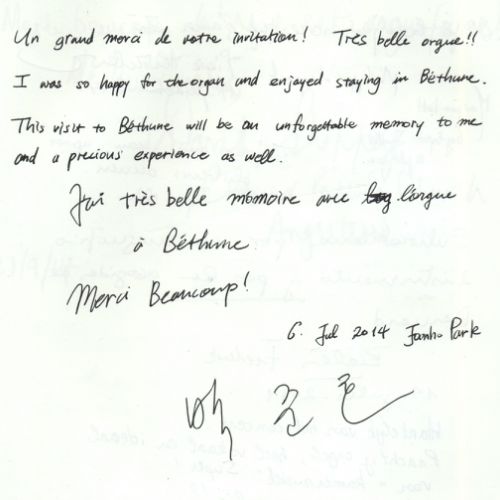 Un grand merci de votre invitation! Très belle orgue!!
I was so happy for the organ and enjoyed staying in Béthune.
This visit to Béthune will be an unforgettable memory to me
and a precious experience as well.
J'ai très belle mémoire avec l'orgue
à Béthune
Merci Beaucoup!
6. Jul 2014 Junho Park
박 준 호